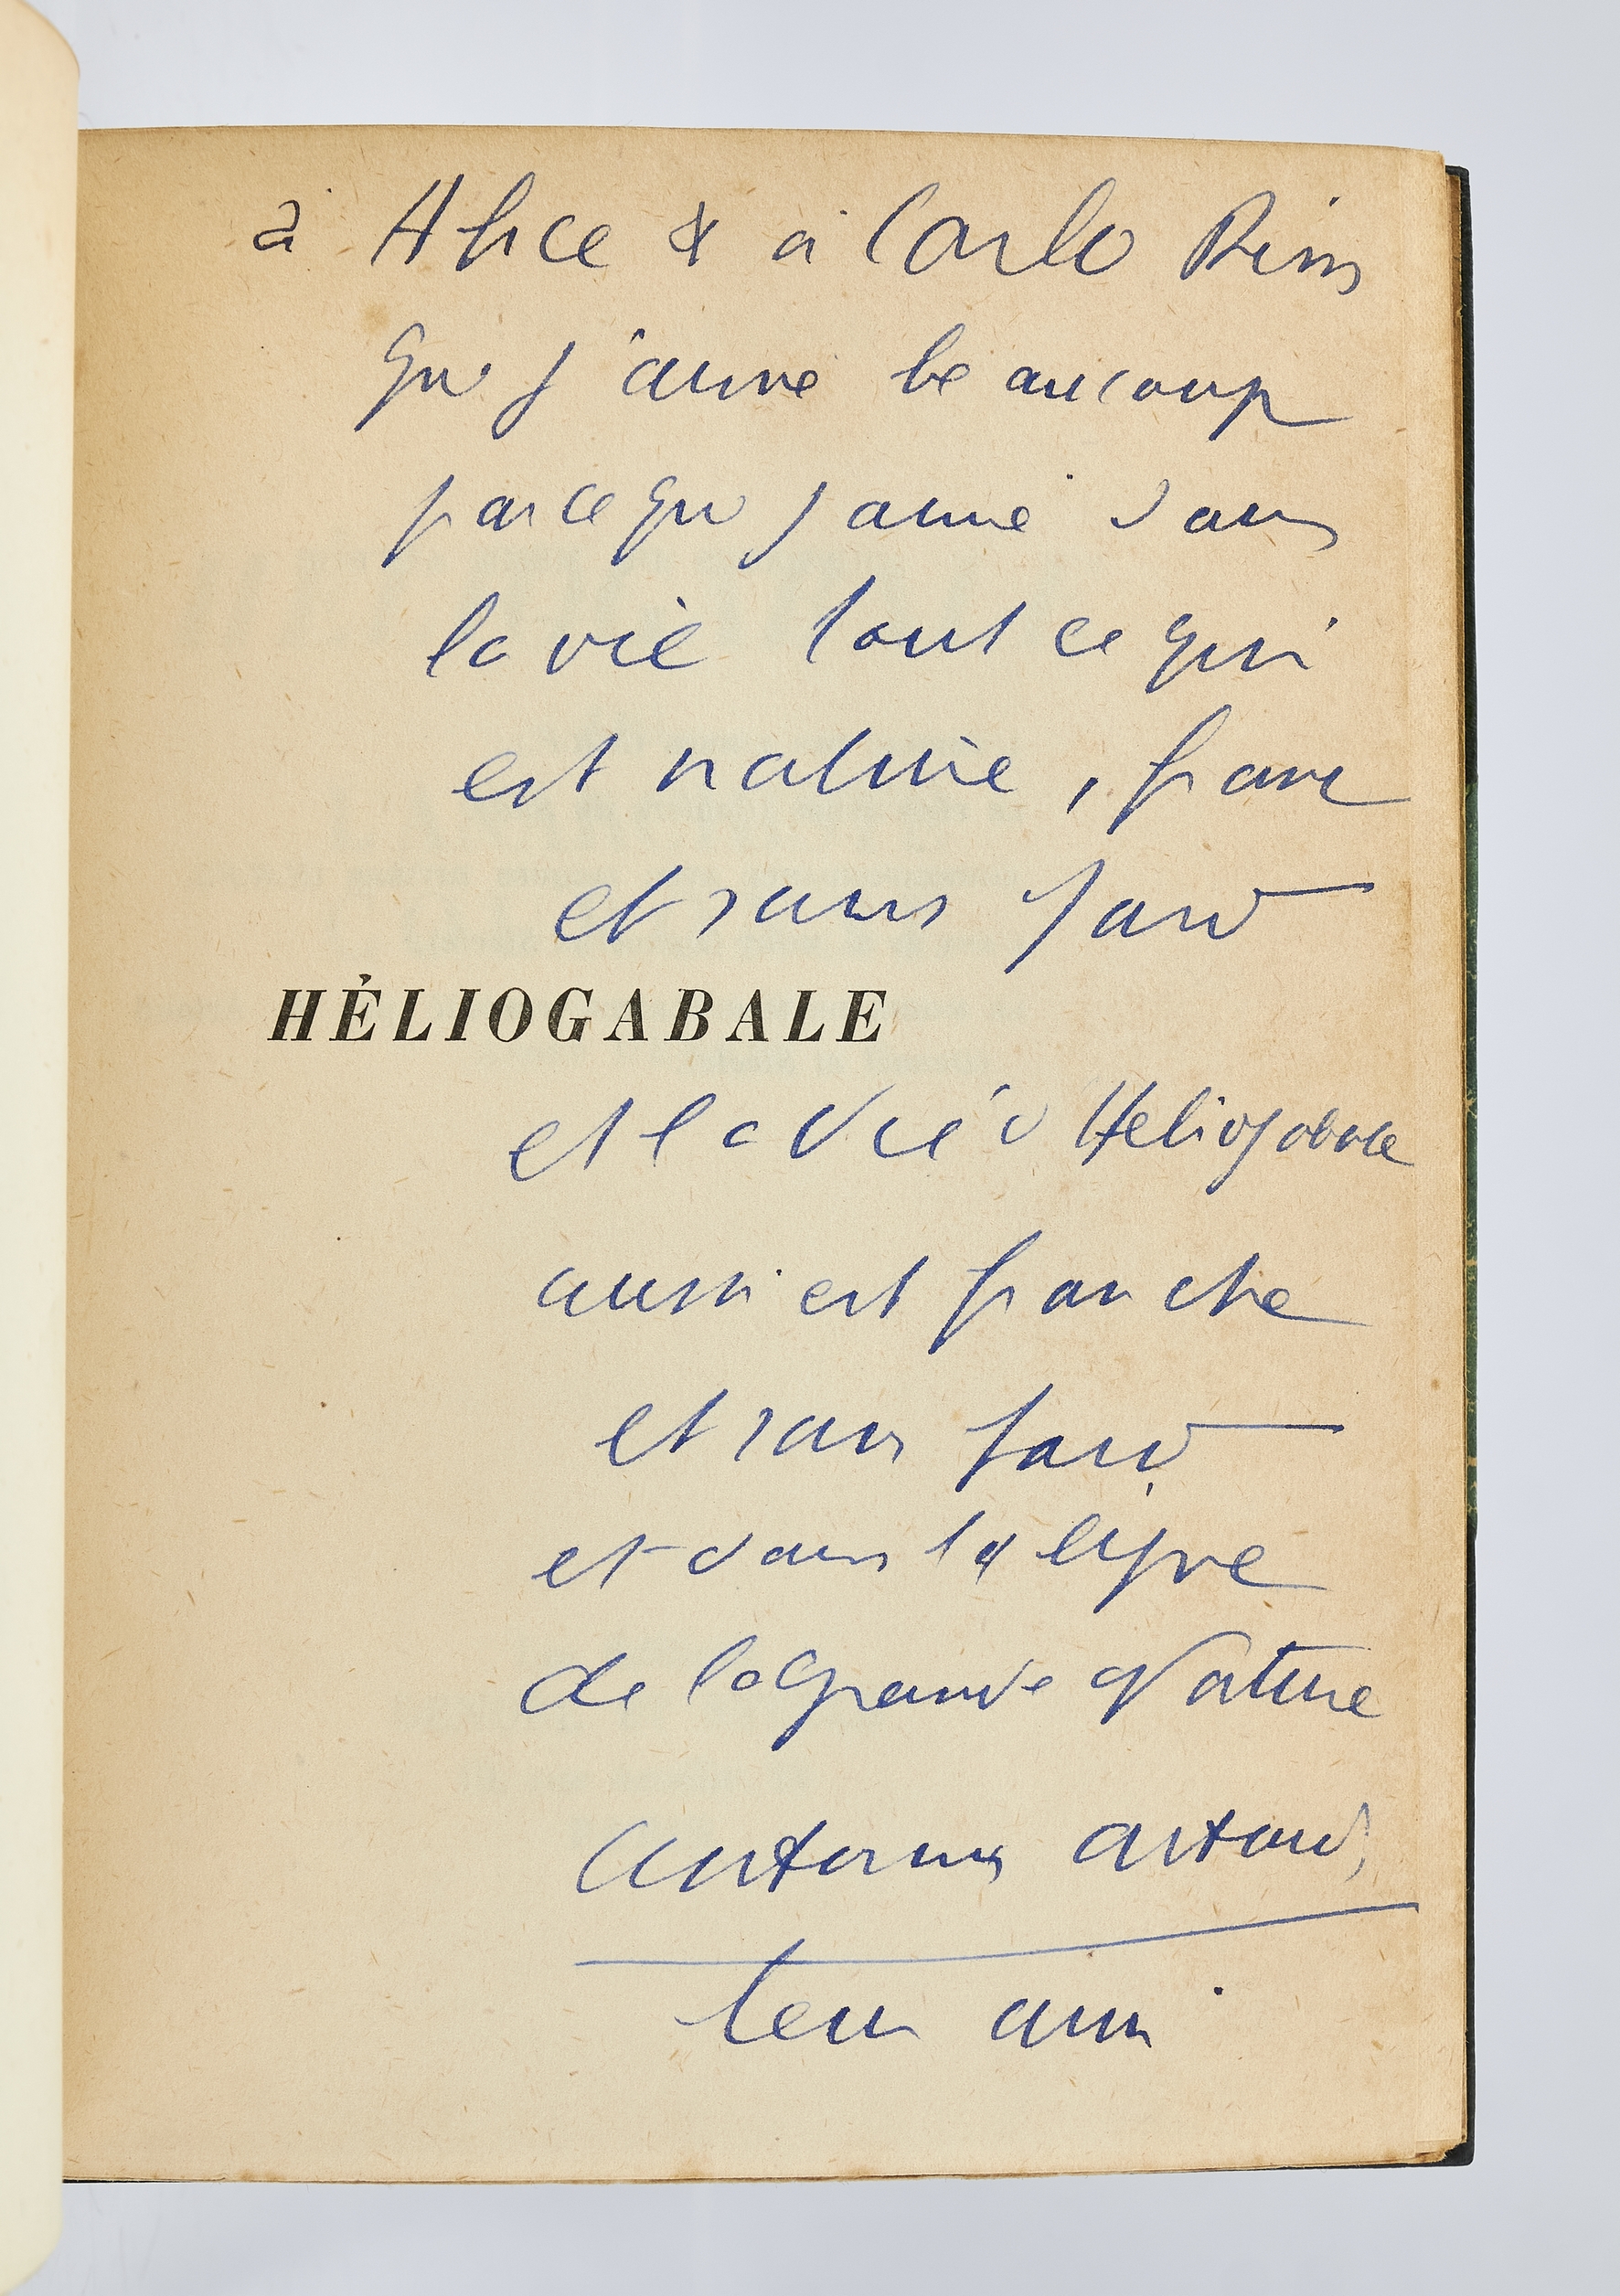 à Alice & à Carlo Rim
que j'aime beaucoup
parce que j'aime dans
la vie tout ce qui
est nature, franc
et sans fard
HÉLIOGABALE
et la vie d'Heliogabale
aussi est franche
et sans fard
et dans la ligne
de la grande Nature
Antonin Artaud
leur ami